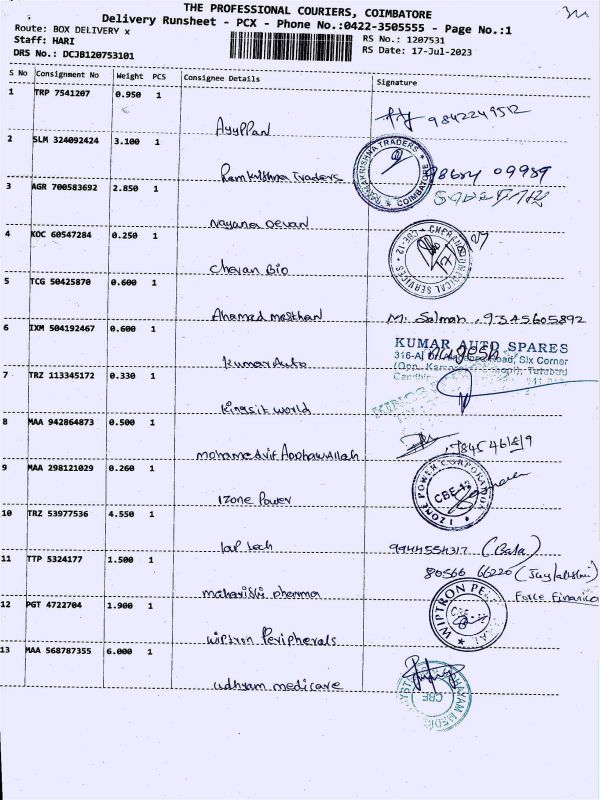 THE PROFESSIONAL COURIERS, COIMBATORE
Delivery Runsheet - PCX - Phone No.:0422-3505555 - Page No.:1
Route: BOX DELIVERY x
RS No.: 1207531
Staff: HARI
RS Date: 17-Jul-2023
DRS No.: DCJB120753101
S No Consignment No Weight PCS Consignee Details Signature
1 TRP 7541207 0.950 1
Ayyppan 9842249512
2 SLM 324092424 3.100 1
Ramkrishna Traders
RAMAKRISHNA TRADERS COIMBATORE
09989
3 AGR 700583692 2.850 1
nayana Devan
4 KOC 60547284 0.250 1
Cheran Bio
5 TCG 50425870 0.600 1
Ahamed masthan M. Salman . 9345605892
6 IXM 504192467 0.600 1
KUMAR AUTO SPARES
Kumar Auto
7 TRZ 113345172 0.330 1
Kingsit world
8 MAA 942864873 0.500 1
9 MAA 298121029 0.260 1
Izone Power
IZONE POWER CORPORATION
CBE-12
10 TRZ 53977536 4.550 1
lap tech 9944554317 (Bala)
11 TTP 5324177 1.500 1
80566 66220
maharishi pharma
Force Finance
12 PGT 4722704 1.900 1
wiptron Peripherals
13 MAA 568787355 6.000 1
udhyam medicare
CBE